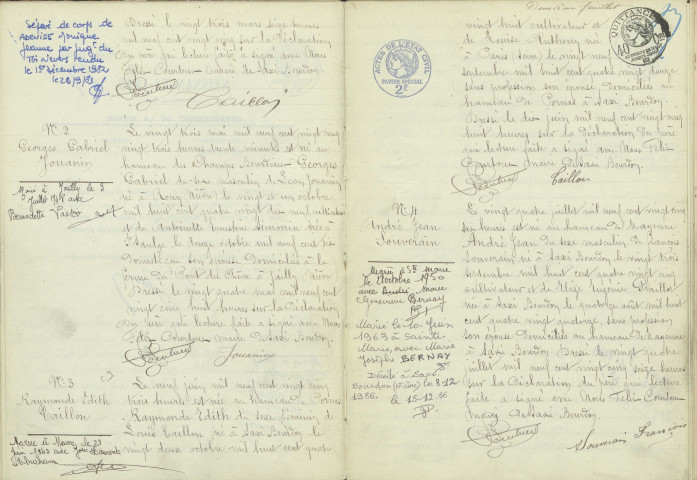 Séparé de corps de
ADENISE Monique
Jeanne par jugt du
TGI Nevers rendu
le 1er décembre 1982
le 28/9/83
Dressé le vingt trois mars seize heures
mil neuf cent vingt cinq sur la déclaration
du père qui lecture faite a signé avec Nous
Félix Coutou maire de Saxi Bourdon.
Taillon
N° 2
Georges Gabriel
Jouanin
Marié à Jailly le 3
Juillet 1948 avec
Bernadette
Le vingt trois mai mil neuf cent vingt cinq
vingt trois heures trente minutes est né au
hameau des Champs Bourdieu Georges
Gabriel du sexe masculin de Léon Jouanin
né à Rouy Nièvre le vingt et un octobre
mil huit cent quatre vingt dix neuf cultivateur
et de Antoinette Ernestine Simonin née à
le douze octobre mil neuf cent dix
son épouse Domiciliés à la
ferme du Pont du Chêne à Jailly Nièvre
Dressé le vingt quatre mai mil neuf cent
vingt cinq huit heures sur la déclaration
du père qui lecture faite a signé avec Nous
Félix Coutou maire de Saxi Bourdon.
Jouanin
N° 3
Raymonde Edith
Taillon
Mariée à
juin 1943 avec
Abraham
Le neuf juin mil neuf cent vingt cinq
trois heures est née au hameau de
Raymonde Edith du sexe féminin de
Louis Taillon né à Saxi Bourdon le
vingt deux octobre mil huit cent quatre
Deuxième feuillet
ACTES DE L'ETAT CIVIL
PAPIER SPÉCIAL
2F
QUITTANCES
vingt huit cultivateur et
de Louise née
à Paris le vingt neuf
septembre mil huit cent quatre vingt douze
sans profession son épouse domiciliés au
hameau de à Saxi Bourdon.
Dressé le dix juin mil neuf cent vingt cinq
huit heures sur la déclaration du père
qui lecture faite a signé avec Nous Félix
Coutou maire de Saxi Bourdon.
Taillon
N° 4
André Jean
Souverain
Marié à Ste Marie
le octobre 1950
avec Marie
Geneviève Bernay
Marié le 10 Juin
1963 à Sainte-
Marie, avec Marie
Josèphe BERNAY
Décédé à Saxi
Bourdon (Nièvre) le 8-12-
1986. le 15-12-86
Le vingt quatre juillet mil neuf cent vingt cinq
six heures est né au hameau de
André Jean du sexe masculin de François
Souverain né à Saxi Bourdon le vingt trois
septembre mil huit cent quatre vingt cinq
cultivateur et de Eugénie
née à Saxi Bourdon le quatorze août mil huit
cent quatre vingt quatorze, sans profession
son épouse domiciliés au hameau de
à Saxi Bourdon. Dressé le vingt quatre
juillet mil neuf cent vingt cinq seize heures
sur la déclaration du père qui lecture
faite a signé avec Nous Félix Coutou
maire de Saxi Bourdon.
Souverain François